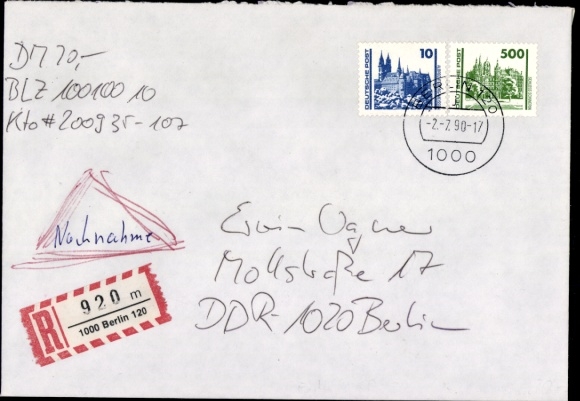 DM 70,-
BLZ 100100 10
Kto # 200935-107
10
DEUTSCHE POST
500
DEUTSCHE POST
BERLIN 120
-2.-7.90-17
1000
Nachnahme
R
920 m
1000 Berlin 120
Erwin Wagner
Mollstraße 17
DDR-1020 Berlin